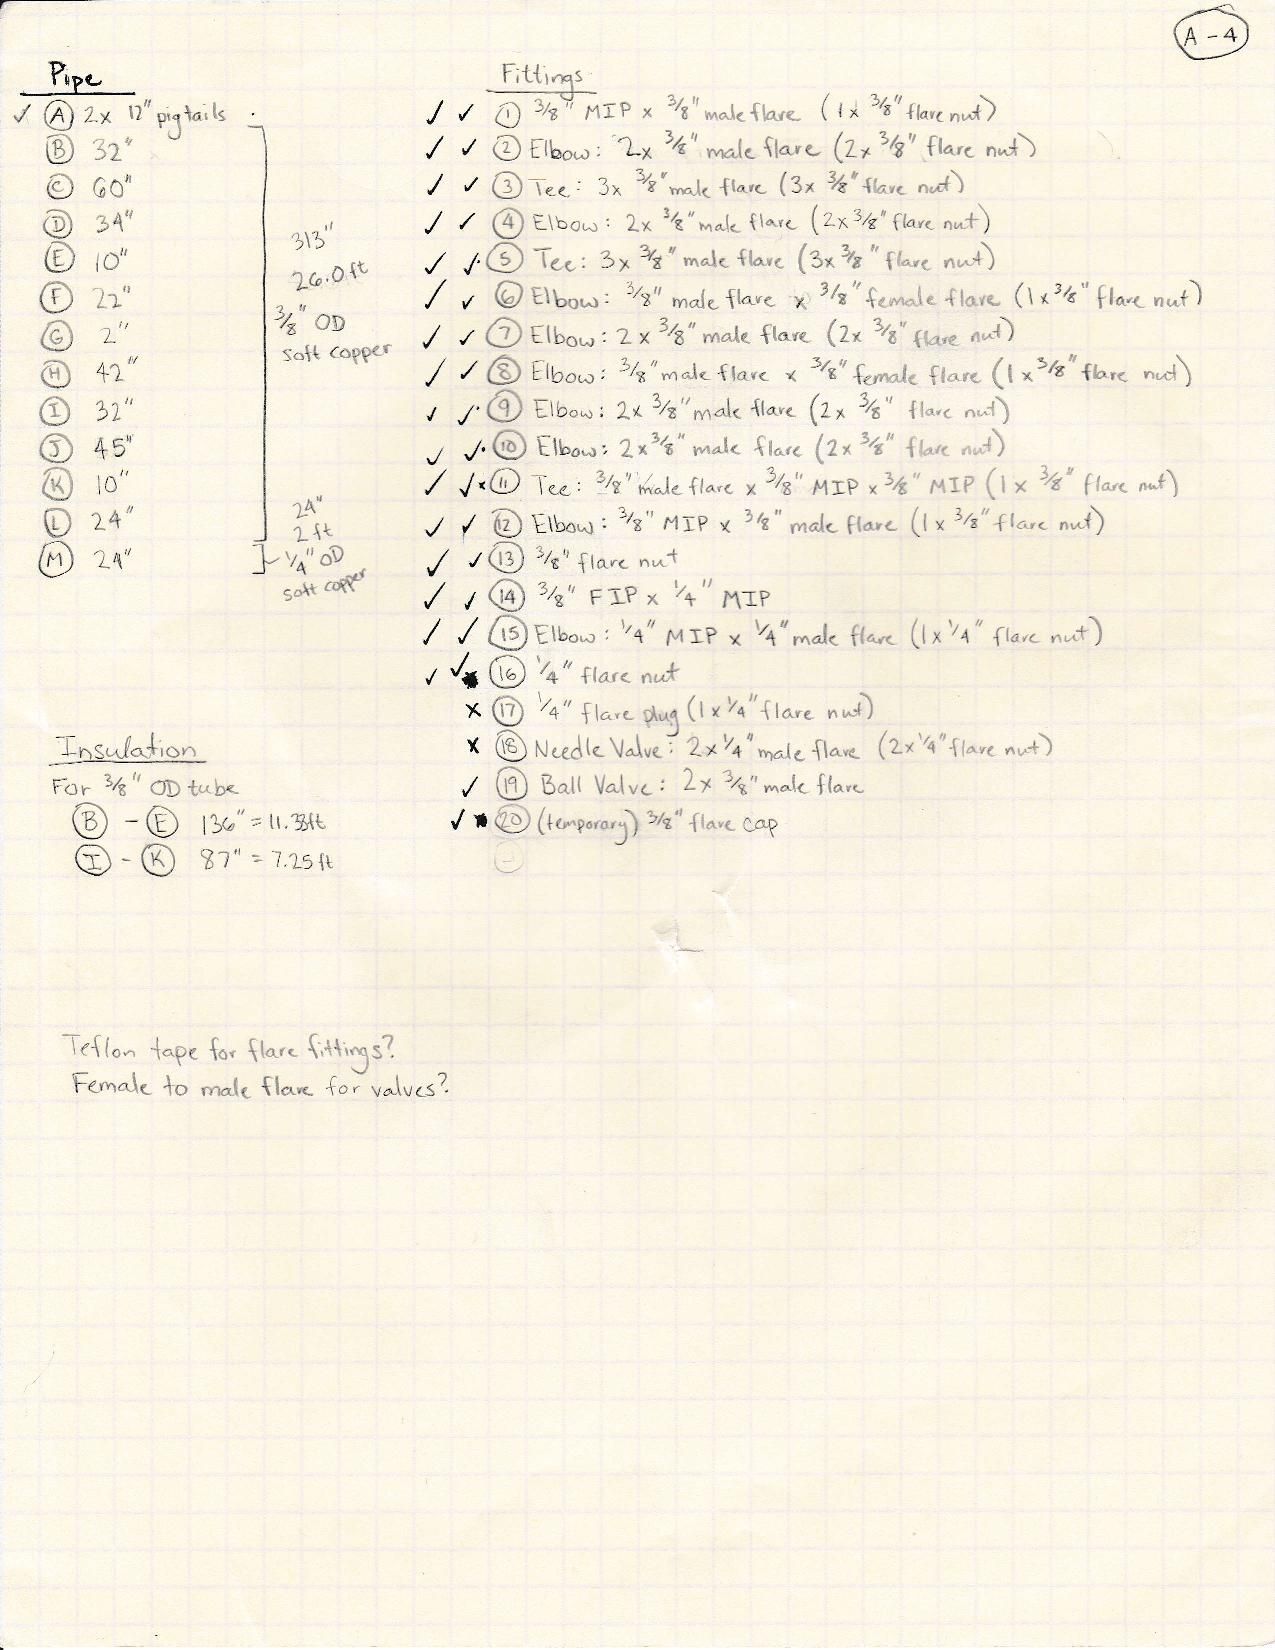 A-4
Pipe
✓ Ⓐ 2x 12" pigtails
Ⓑ 32"
Ⓒ 60"
Ⓓ 34"
Ⓔ 10"
Ⓕ 22"
Ⓖ 2"
Ⓗ 42"
Ⓘ 32"
Ⓙ 45"
Ⓚ 10"
Ⓛ 24"
Ⓜ 24"
313"
26.0 ft
3/8" OD
soft copper
24"
2 ft
1/4" OD
soft copper
Insulation
For 3/8" OD tube
Ⓑ - Ⓔ 136" = 11.33ft
Ⓘ - Ⓚ 87" = 7.25 ft
Fittings
✓ ✓ ① 3/8" MIP x 3/8" male flare (1x 3/8" flare nut)
✓ ✓ ② Elbow: 2x 3/8" male flare (2x 3/8" flare nut)
✓ ✓ ③ Tee: 3x 3/8" male flare (3x 3/8" flare nut)
✓ ✓ ④ Elbow: 2x 3/8" male flare (2x 3/8" flare nut)
✓ ✓ ⑤ Tee: 3x 3/8" male flare (3x 3/8" flare nut)
✓ ✓ ⑥ Elbow: 3/8" male flare x 3/8" female flare (1x 3/8" flare nut)
✓ ✓ ⑦ Elbow: 2x 3/8" male flare (2x 3/8" flare nut)
✓ ✓ ⑧ Elbow: 3/8" male flare x 3/8" female flare (1x 3/8" flare nut)
✓ ✓ ⑨ Elbow: 2x 3/8" male flare (2x 3/8" flare nut)
✓ ✓ ⑩ Elbow: 2x 3/8" male flare (2x 3/8" flare nut)
✓ ✓ x ⑪ Tee: 3/8" male flare x 3/8" MIP x 3/8" MIP (1x 3/8" flare nut)
✓ ✓ ⑫ Elbow: 3/8" MIP x 3/8" male flare (1x 3/8" flare nut)
✓ ✓ ⑬ 3/8" flare nut
✓ ✓ ⑭ 3/8" FIP x 1/4" MIP
✓ ✓ ⑮ Elbow: 1/4" MIP x 1/4" male flare (1x 1/4" flare nut)
✓ ✓ ⑯ 1/4" flare nut
x ⑰ 1/4" flare plug (1x 1/4" flare nut)
x ⑱ Needle Valve: 2x 1/4" male flare (2x 1/4" flare nut)
✓ ⑲ Ball Valve: 2x 3/8" male flare
✓ ⑳ (temporary) 3/8" flare cap
Teflon tape for flare fittings?
Female to male flare for valves?